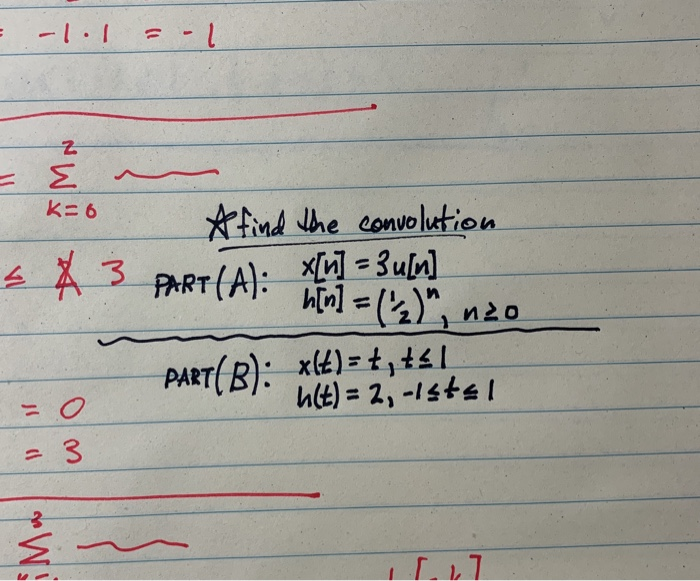 = -1 · 1 = -1
2
= Σ
k=0
☆ find the convolution
≤ 3
PART (A): x[n] = 3u[n]
h[n] = (1/2)^n, n≥0
PART (B): x(t) = t, t≤1
h(t) = 2, -1≤t≤1
= 0
= 3
3
Σ